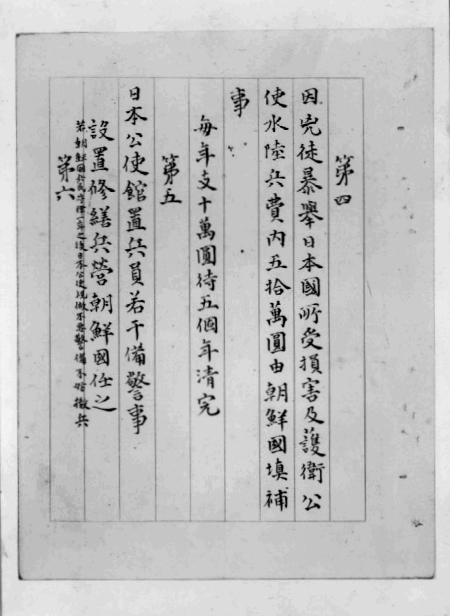 第四
因兇徒暴擧日本國所受損害及護衛公
使水陸兵費内五拾萬圓由朝鮮國填補
事
毎年支十萬圓待五個年清完
第五
日本公使館置兵員若干備警事
設置修繕兵營朝鮮國任之
若朝鮮國兵民守律一年之後日本公使視做不要警備不妨撤兵
第六